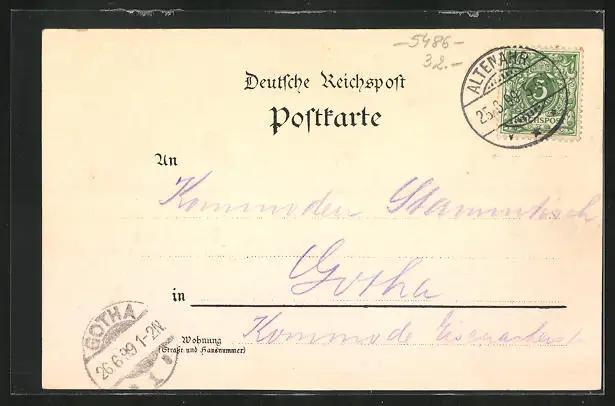 -5486-
32.-
Deutsche Reichspost
Postkarte
ALTENAHR
5
REICHSPOST
An
Kommoden Stammtisch
in Gotha
Wohnung Kommode
(Straße und Hausnummer)
GOTHA
26.6.99.1-2N.
1